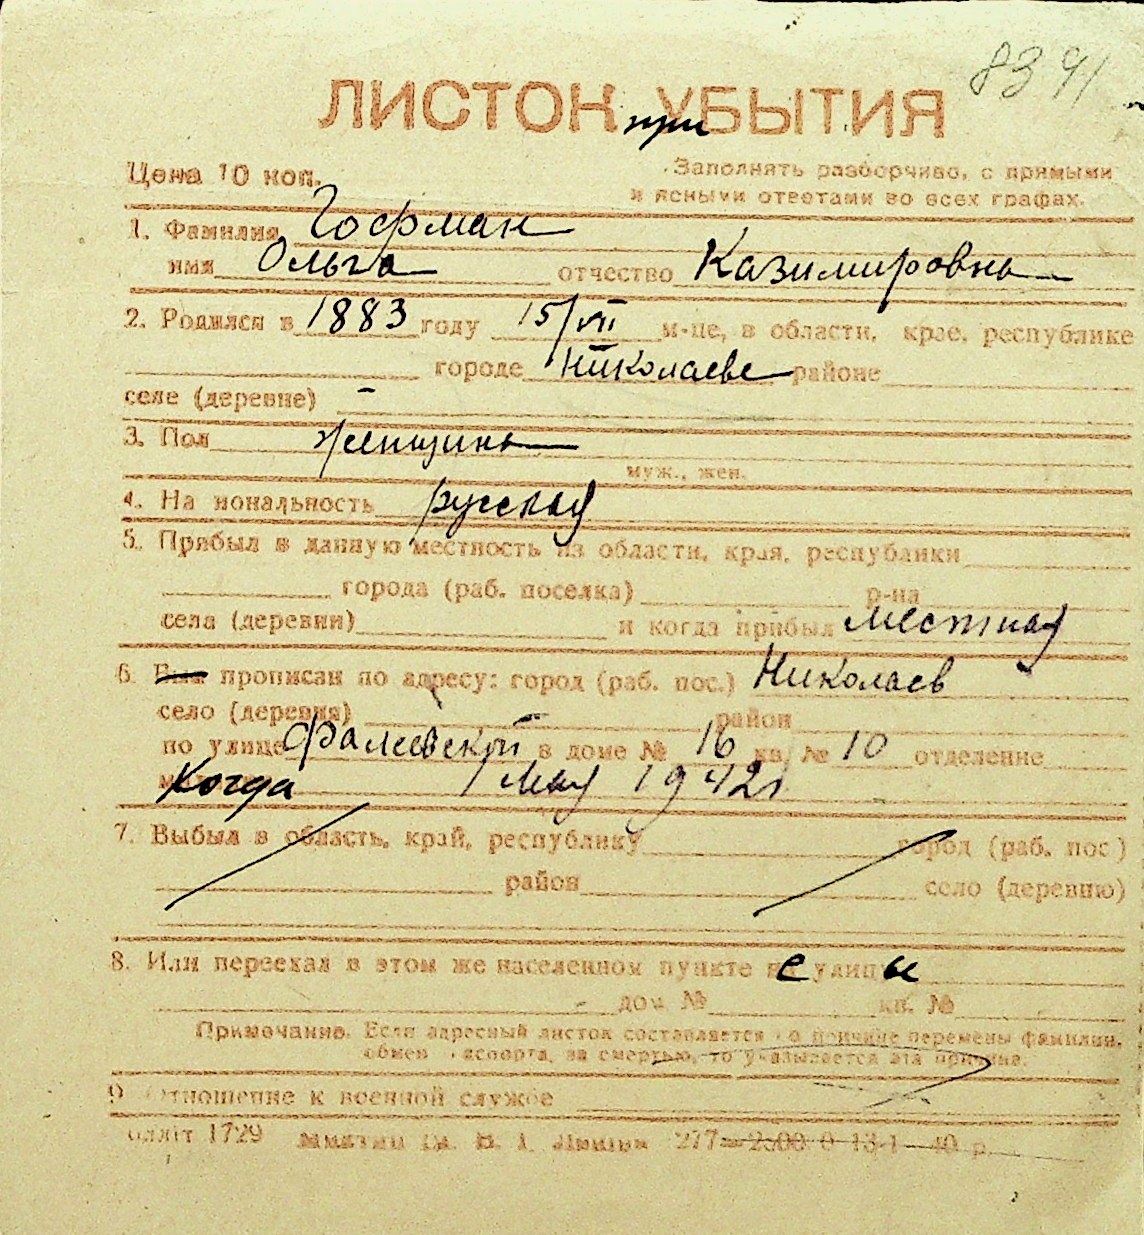 8391
ЛИСТОК при УБЫТИЯ
Цена 10 коп.
Заполнять разборчиво, с прямыми
и ясными ответами во всех графах.
1. Фамилия Гофман
имя Ольга отчество Казимировна
2. Родился в 1883 году 15/VII м-це, в области, крае, республике
городе Николаеве районе
селе (деревне) -
3. Пол женщина
муж., жен.
4. На иональность русская
5. Прибыл в данную местность из области, края, республики
города (раб. поселка) р-на
села (деревни) и когда прибыл местная
6. прописан по адресу: город (раб. пос.) Николаев
село (деревня) район
по улице Фалеевской в доме № 16 кв. № 10 отделение
Когда 1 мая 1942 г
7. Выбыл в область, край, республику город (раб. пос.)
район село (деревню)
8. Или переехал в этом же населенном пункте с улицы
дом № кв. №
Примечание. Если адресный листок составляется по причине перемены фамилии,
обмен паспорта, за смертью, то указывается эта причина.
9 Отношение к военной службе
1729 277—2500 0 13-1—40 р.